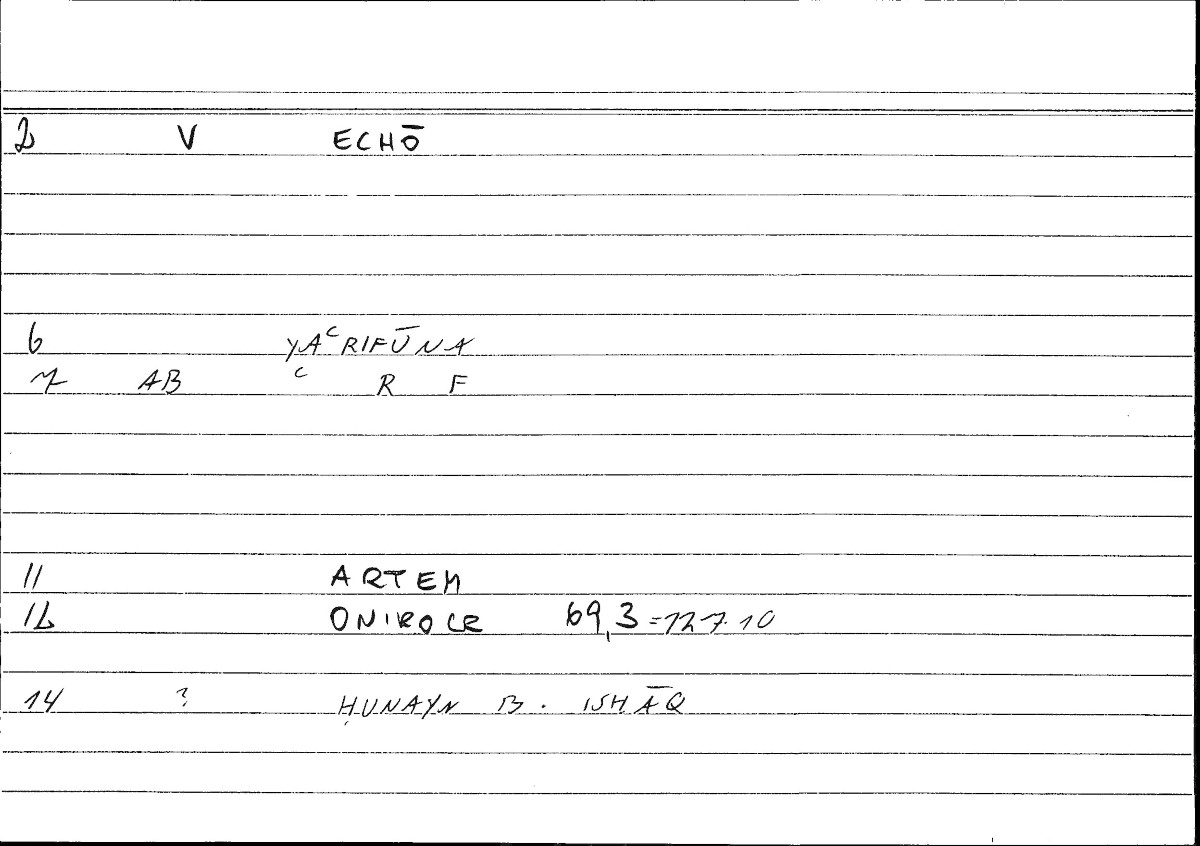 2 V ECHŌ
6 YAʿRIFŪNA
7 AB ʿ R F
11 ARTEM
12 ONIROCR 69,3 = 127.10
14 ? ḤUNAYN B. ISHĀQ